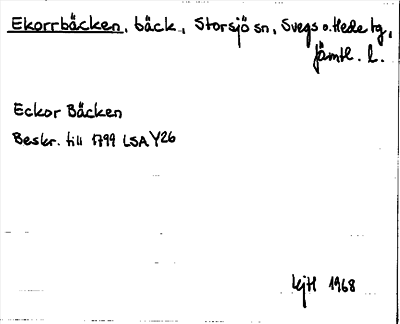 Ekorrbäcken, bäck, Storsjö sn, Svegs o. Hede tg,
Jämtl. l.
Eckor Bäcken
Beskr. till 1799 LSA Y26
kjH 1968